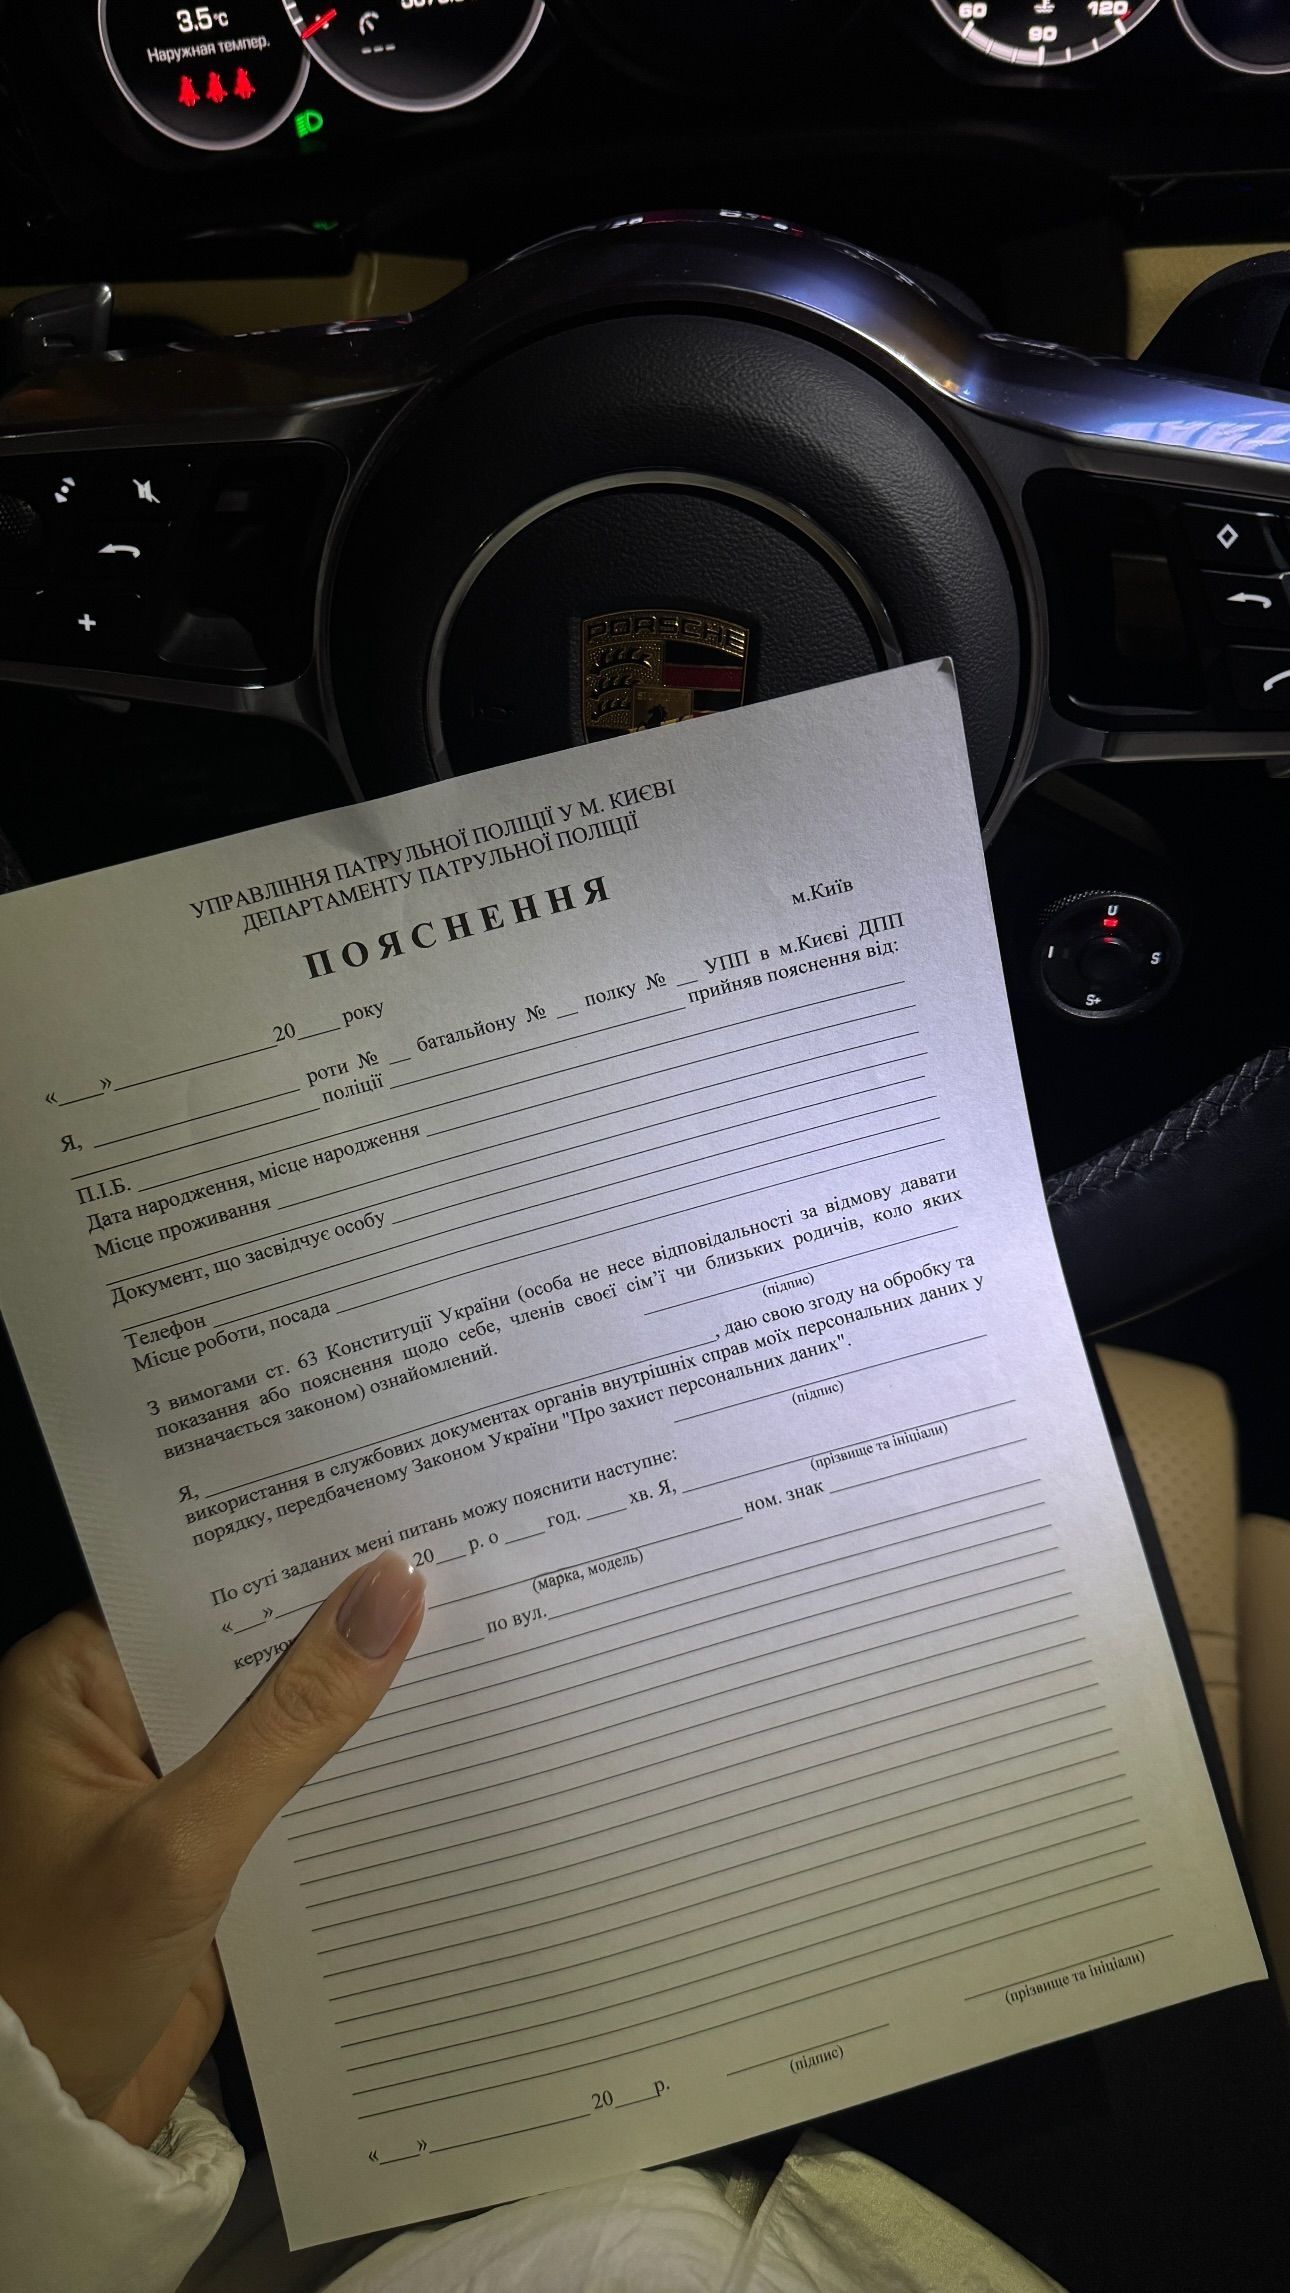 3.5°C
Наружная темпер.
60 90 120
PORSCHE
U
I S
S+
УПРАВЛІННЯ ПАТРУЛЬНОЇ ПОЛІЦІЇ У М. КИЄВІ
ДЕПАРТАМЕНТУ ПАТРУЛЬНОЇ ПОЛІЦІЇ
ПОЯСНЕННЯ
м.Київ
«____»_______________20____ року
Я, ____________________ роти № __ батальйону № __ полку № __ УПП в м.Києві ДПП
________________________поліції ______________________________прийняв пояснення від:
П.І.Б. ____________________
Дата народження, місце народження ____________________
Місце проживання ____________________
Документ, що засвідчує особу ____________________
Телефон ____________________
Місце роботи, посада ____________________
З вимогами ст. 63 Конституції України (особа не несе відповідальності за відмову давати
показання або пояснення щодо себе, членів своєї сім’ї чи близьких родичів, коло яких
визначається законом) ознайомлений. ____________________
(підпис)
Я, ________________________________________, даю свою згоду на обробку та
використання в службових документах органів внутрішніх справ моїх персональних даних у
порядку, передбаченому Законом України "Про захист персональних даних".
(підпис)
По суті заданих мені питань можу пояснити наступне:
«___»____ 20___ р. о ____ год. ____ хв. Я, ____________________
(прізвище та ініціали)
керую ____________________ ном. знак ____________________
(марка, модель)
_______ по вул.____________________
(прізвище та ініціали)
(підпис)
«____»_______________ 20____р.